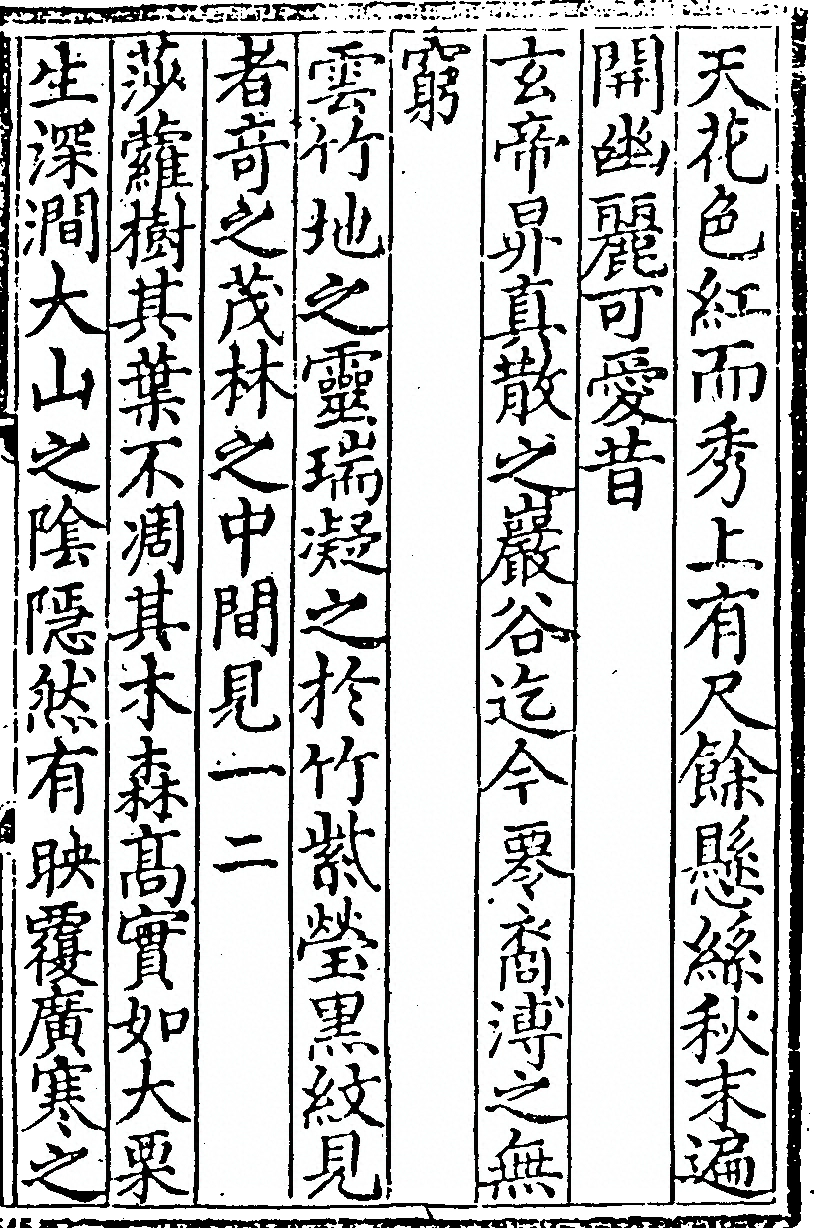 天花色紅而秀上有尺餘懸絲秋末遍
開幽麗可愛昔
玄帝昇真散之巖谷迄今零裔溥之無
窮
雲竹地之靈瑞凝之於竹紫瑩黒紋見
者竒之茂林之中間見一二
莎蘿樹其葉不凋其木森髙實如大栗
生深澗大山之陰隠然有映覆廣寒之